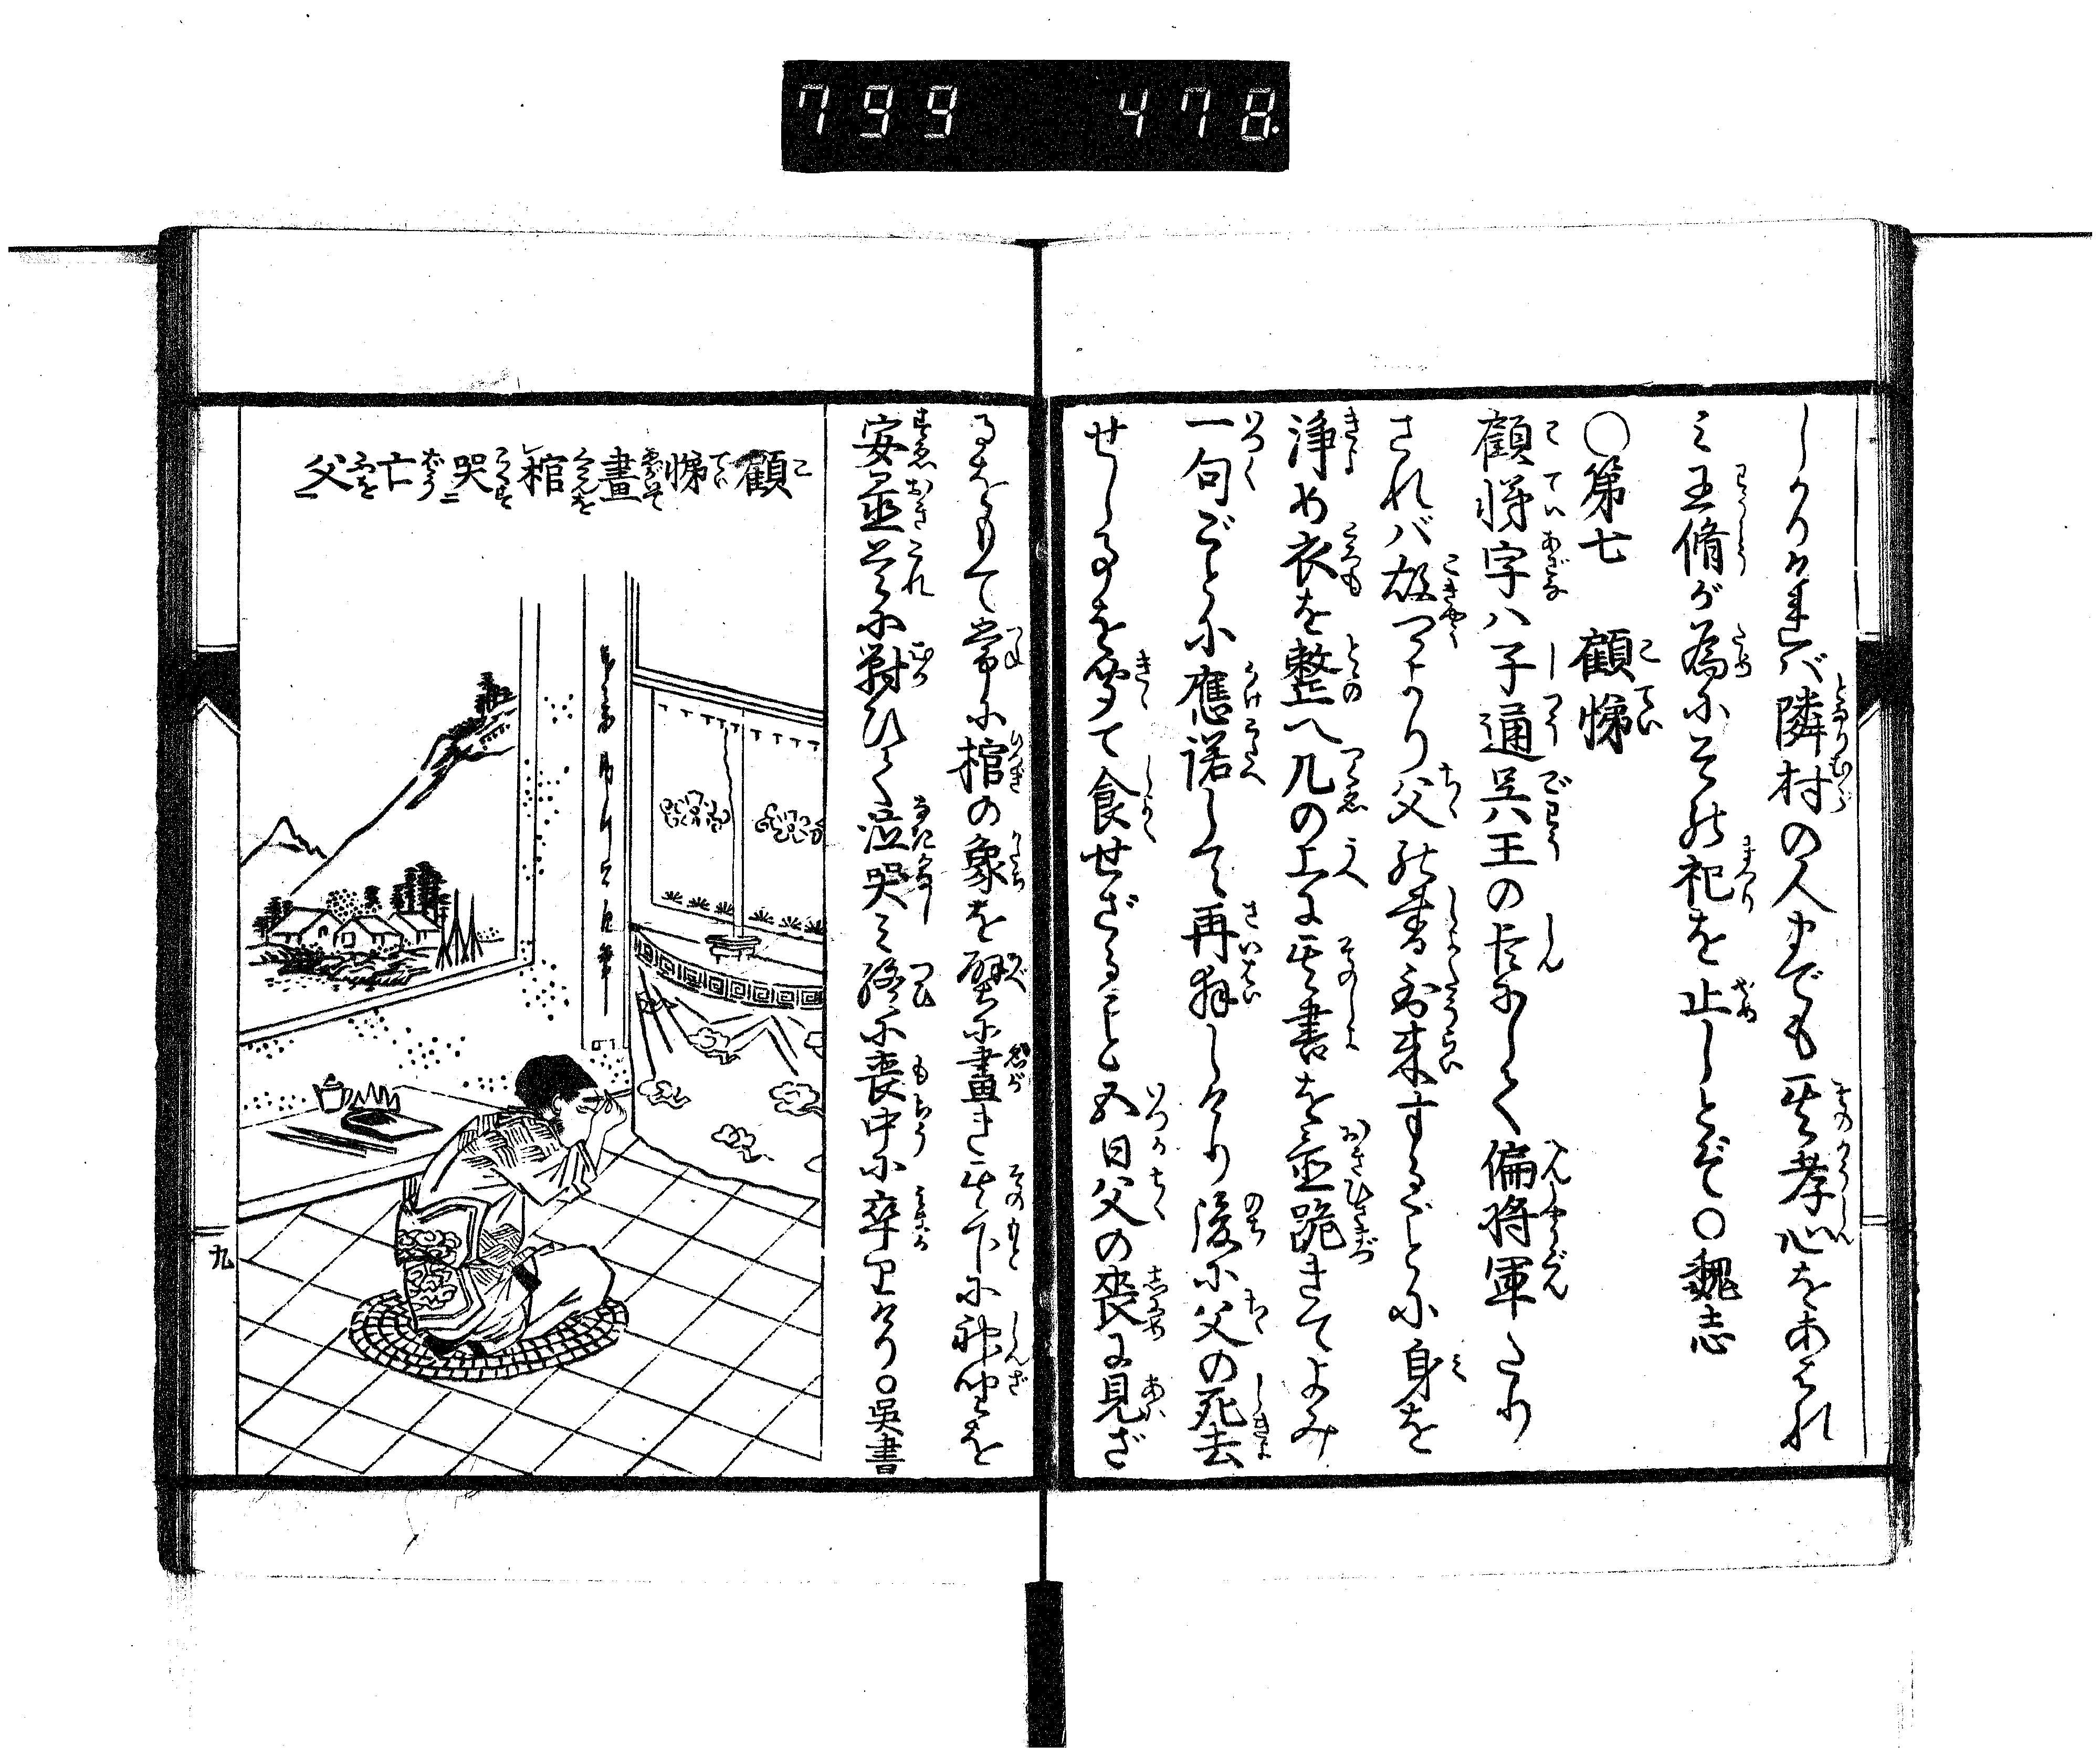 799 478.
しかりければ隣村の人までも其孝心をあはれ
み王脩が為に其の祀を止しとぞ○魏志
○第七 顧悌
顧悌字ハ子通呉王の臣にして偏将軍たり
されバ故郷より父の書到来するごとに身を
浄め衣を整へ几の上に其書を置跪きてよみ
一句ごとに應諾して再拜しけり後に父の死去
せし事を聞て食せざること五日父の喪に見ざ
る事をもて常に棺の象を壁に畫き其下に神坐を
安置これに對ひて泣哭み終に喪中に卒りけり○呉書
顧悌畫棺哭亡父
九